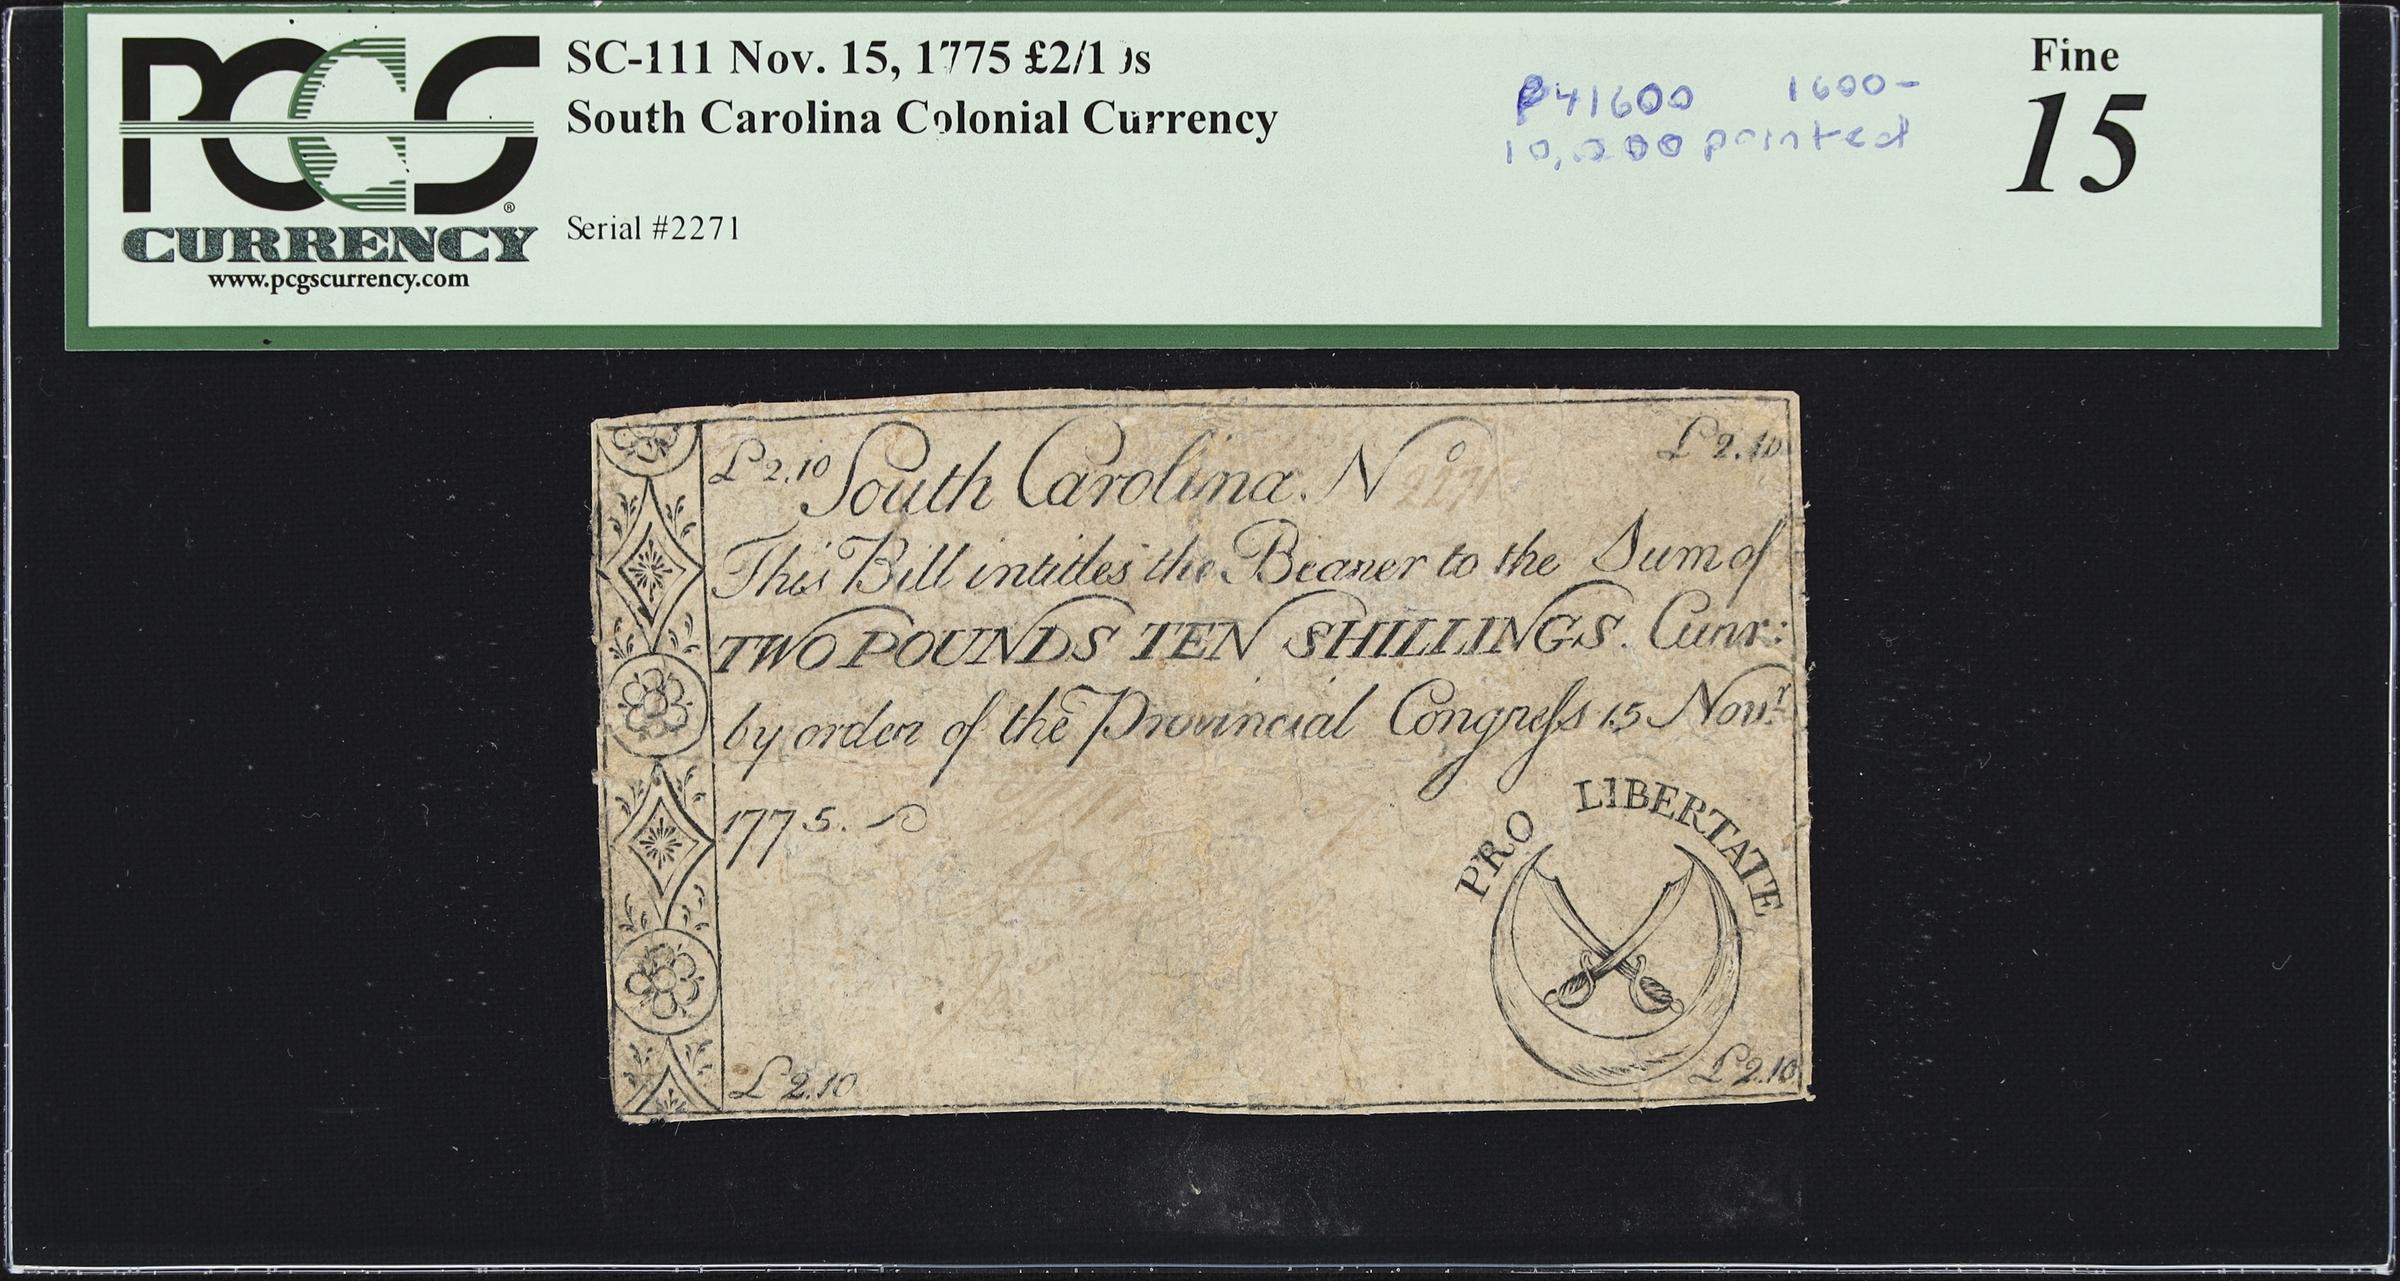 PCGS
CURRENCY
www.pcgscurrency.com
SC-111 Nov. 15, 1775 £2/10s
South Carolina Colonial Currency
Serial #2271
1600-
printed
Fine
15
£2.10 South Carolina. No 2271 £2.10
This Bill intitles the Bearer to the Sum of
TWO POUNDS TEN SHILLINGS. Curr:
by order of the Provincial Congreſs 15 Novr.
1775.
PRO LIBERTATE
£2.10 £2.10